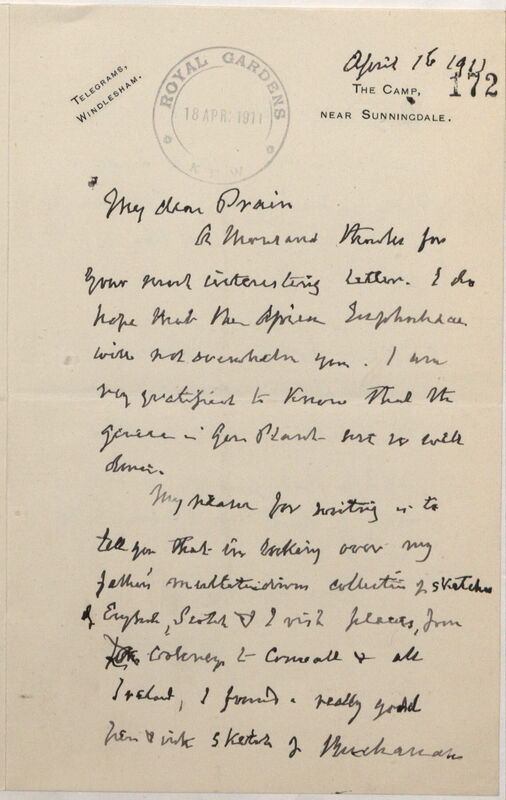 TELEGRAMS,
WINDLESHAM.
ROYAL GARDENS
18 APR. 1911
KEW
April 16 1911
172
THE CAMP,
NEAR SUNNINGDALE.
My dear Prain
A thousand thanks for
your most interesting letter. I do
hope that the African Euphorbiaceae
will not overwhelm you. I am
very gratified to know that the
genera in Gen Plant are so well
done.
My reason for writing is to
tell you that in looking over my
father's multitudinous collection of sketches
of English, Scotch & Irish places, from
to Cornwall & all
Ireland, I found a really good
pen & ink sketch of Buchanan